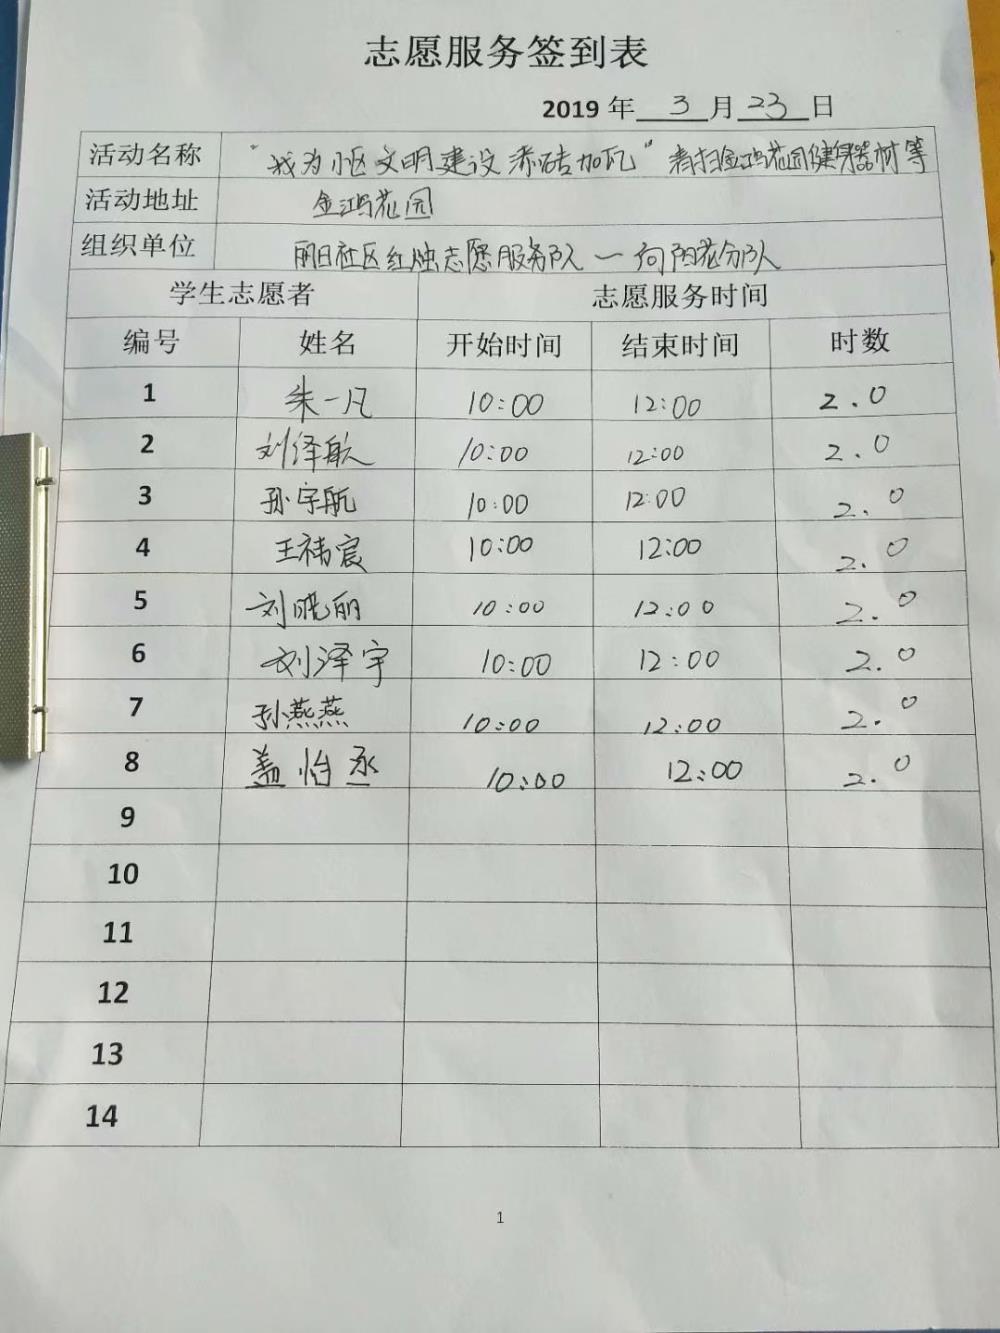 志愿服务签到表
2019 年 3 月 23 日
活动名称 "我为小区文明建设添砖加瓦" 清扫金鸿花园健身器材等
活动地址 金鸿花园
组织单位 丽日社区红烛志愿服务队一向阳花分队
学生志愿者 志愿服务时间
编号 姓名 开始时间 结束时间 时数
1 朱一凡 10:00 12:00 2.0
2 刘绎航 10:00 12:00 2.0
3 孙宇航 10:00 12:00 2.0
4 王祎宸 10:00 12:00 2.0
5 刘晓丽 10:00 12:00 2.0
6 刘泽宇 10:00 12:00 2.0
7 孙燕燕 10:00 12:00 2.0
8 盖怡丞 10:00 12:00 2.0
9
10
11
12
13
14
1